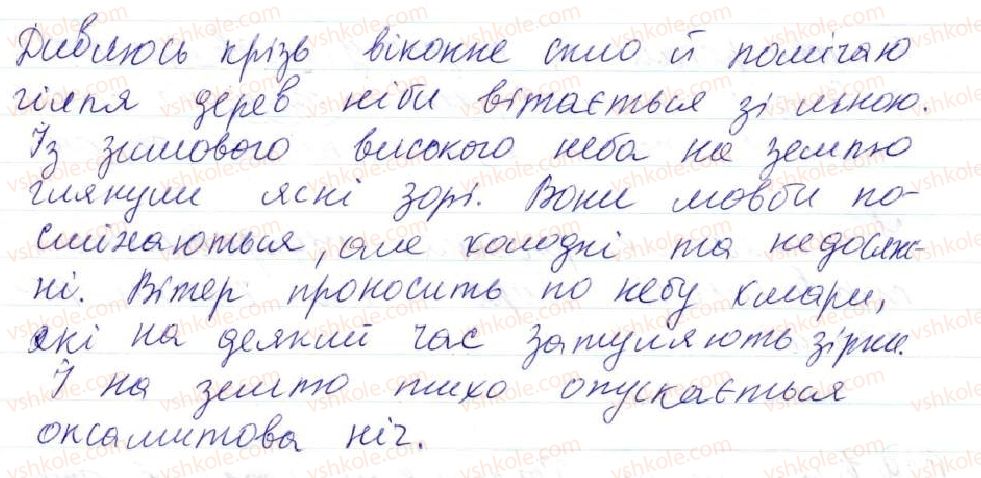 Дивлюсь крізь віконне скло й помічаю
гілля дерев ніби вітається зі мною.
Із зимового високого неба на землю
глянули ясні зорі. Вони мовби по-
сміхаються, але холодні та недосяж-
ні. Вітер проносить по небу хмари,
які на деякий час затуляють зірки.
І на землю тихо опускається
оксамитова ніч.